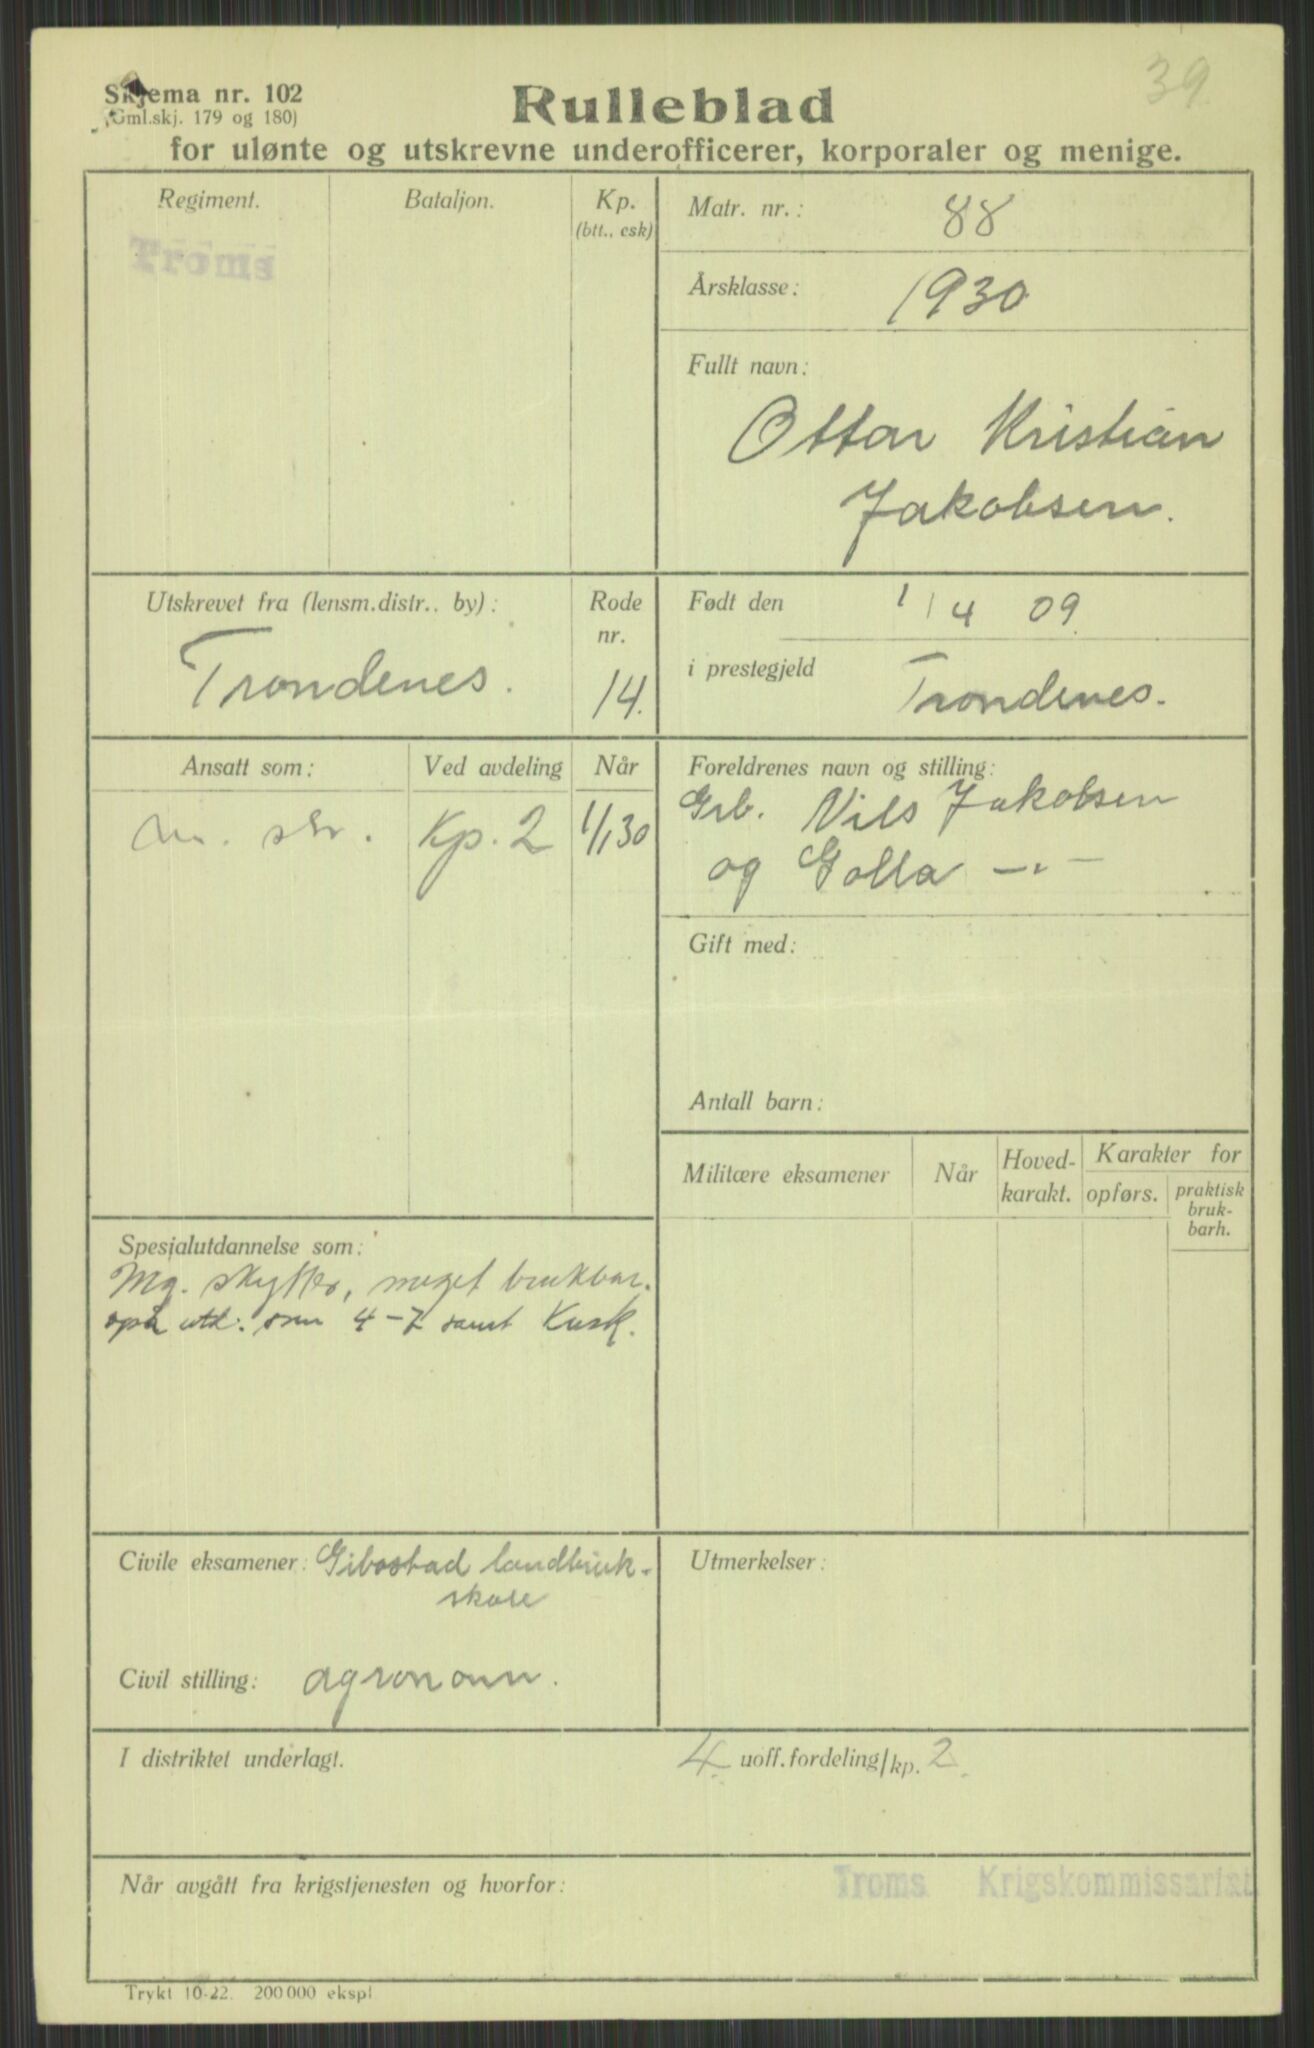 39
Skjema nr. 102
(Gml.skj. 179 og 180)
Rulleblad
for ulønte og utskrevne underofficerer, korporaler og menige.
Regiment.
Troms
Bataljon.
Kp.
(btt., esk)
Matr. nr.: 88
Årsklasse: 1930
Fullt navn:
Ottar Kristian
Jakobsen.
Utskrevet fra (lensm.distr., by):
Trondenes.
Rode
nr.
14.
Født den 1/4 09
i prestegjeld Trondenes.
Ansatt som:
Ved avdeling
Når
Kp. 2
1/1 30
Foreldrenes navn og stilling:
Grb. Nils Jakobsen
og Golla -"-
Gift med:
Antall barn:
Militære eksamener
Når
Hoved-
karakt.
Karakter for
opførs.
praktisk
bruk-
barh.
Spesialutdannelse som:
Mg. skytter, meget brukbar.
også utd. som 4-7 samt Kusk.
Civile eksamener: Gibostad landbruk-
skole
Civil stilling: agronom.
Utmerkelser:
I distriktet underlagt. 4. uoff.fordeling/kp. 2.
Når avgått fra krigstjenesten og hvorfor:
Troms Krigskommissariat
Trykt 10-22. 200 000 ekspl